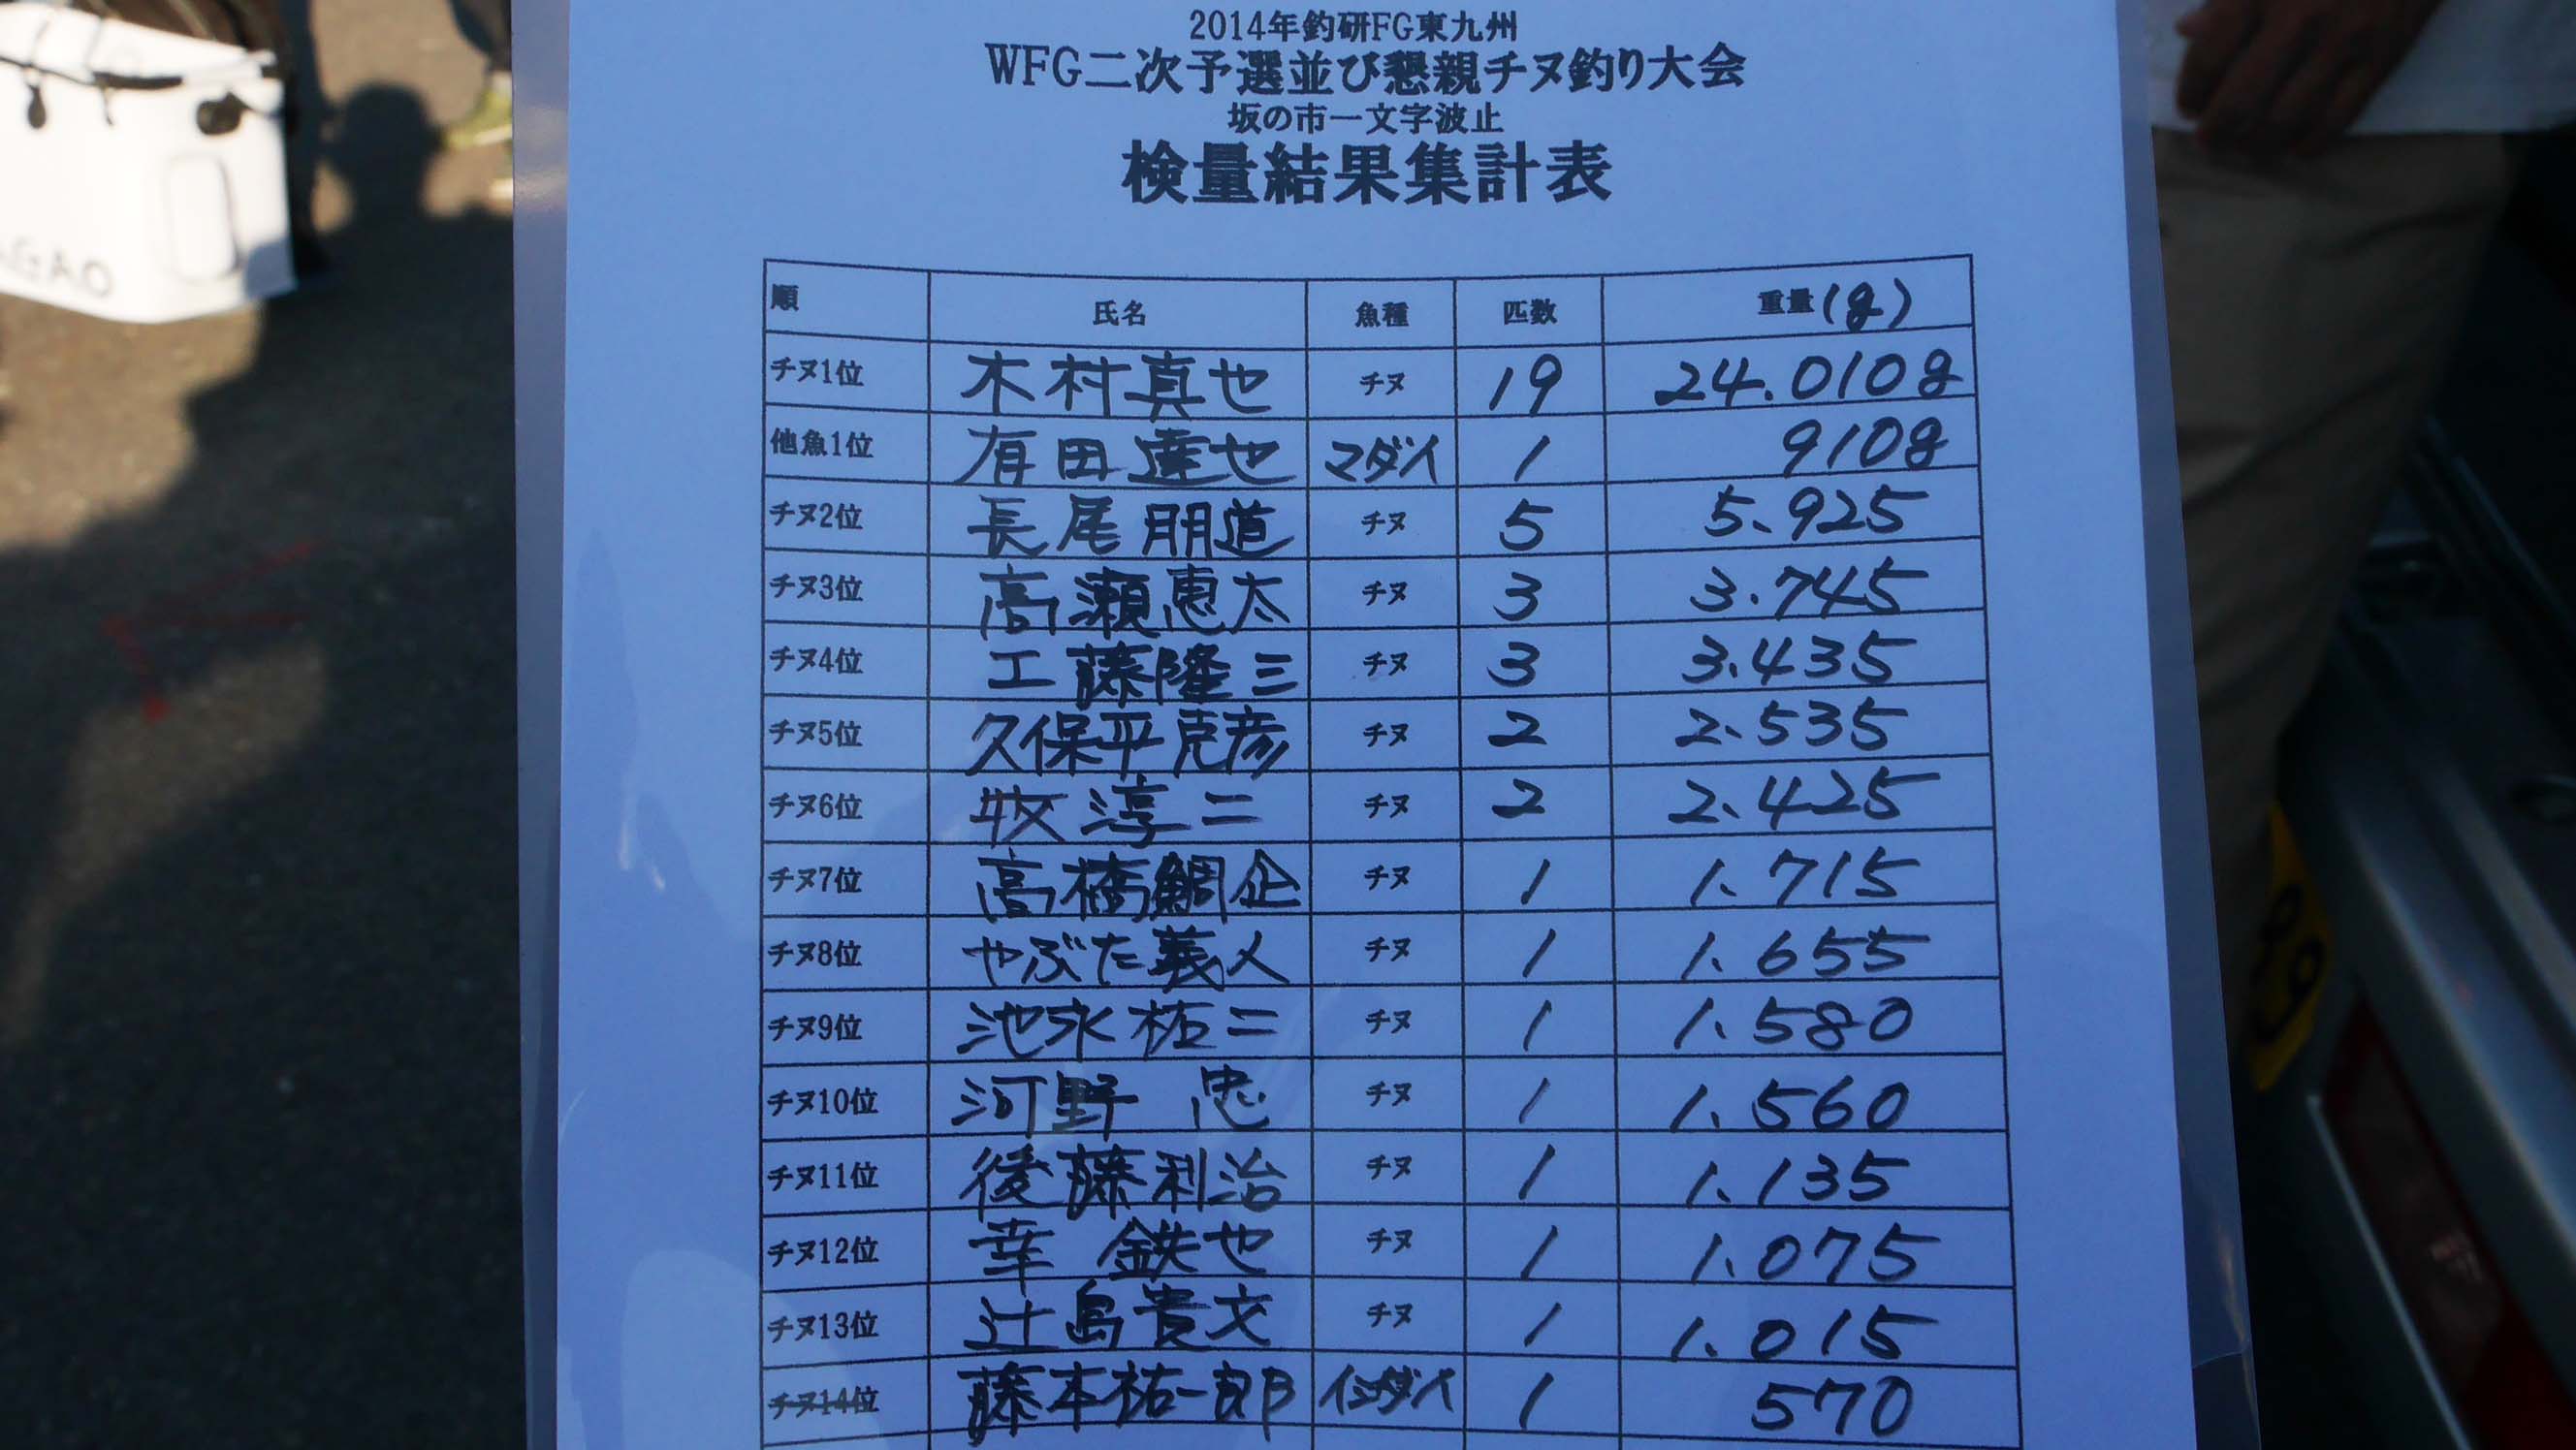 2014年釣研FG東九州
WFG二次予選並び懇親チヌ釣り大会
坂の市一文字波止
検量結果集計表
順 氏名 魚種 匹数 重量(g)
チヌ1位 木村真也 チヌ 19 24.010g
他魚1位 有田達也 マダイ 1 910g
チヌ2位 長尾朋道 チヌ 5 5.925
チヌ3位 高瀬恵太 チヌ 3 3.745
チヌ4位 工藤隆三 チヌ 3 3.435
チヌ5位 久保平克彦 チヌ 2 2.535
チヌ6位 牧淳二 チヌ 2 2.425
チヌ7位 高橋鯛企 チヌ 1 1.715
チヌ8位 やぶた義人 チヌ 1 1.655
チヌ9位 池永祐二 チヌ 1 1.580
チヌ10位 河野 忠 チヌ 1 1.560
チヌ11位 後藤利治 チヌ 1 1.135
チヌ12位 幸 鉄也 チヌ 1 1.075
チヌ13位 辻島貴文 チヌ 1 1.015
チヌ14位 藤本祐一郎 イシダイ 1 570